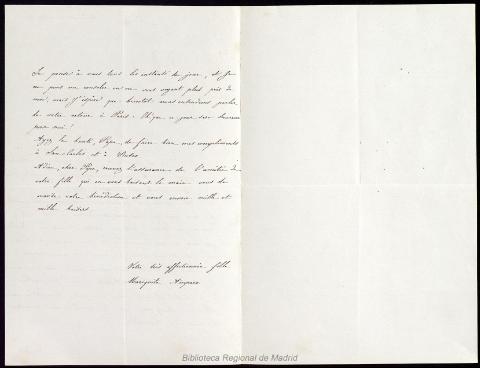 Je pense à vous tous les instants du jour, et je
ne puis me consoler en ne vous voyant plus près de
moi, mais j'espère que bientôt nous entendrons parler
de votre retour à Paris. Oh que ce jour sera heureux
pour moi!
Ayez la bonté, Papa, de faire bien mes compliments
à San Carlos et à Pedro
Adieu, cher Papa, recevez l'assurance de l'amitié de
votre fille qui en vous baisant la main vous de
mande votre bénédiction et vous envoie mille et
mille baisers
Votre très affectionnée fille
Mariquita Amparo
Biblioteca Regional de Madrid